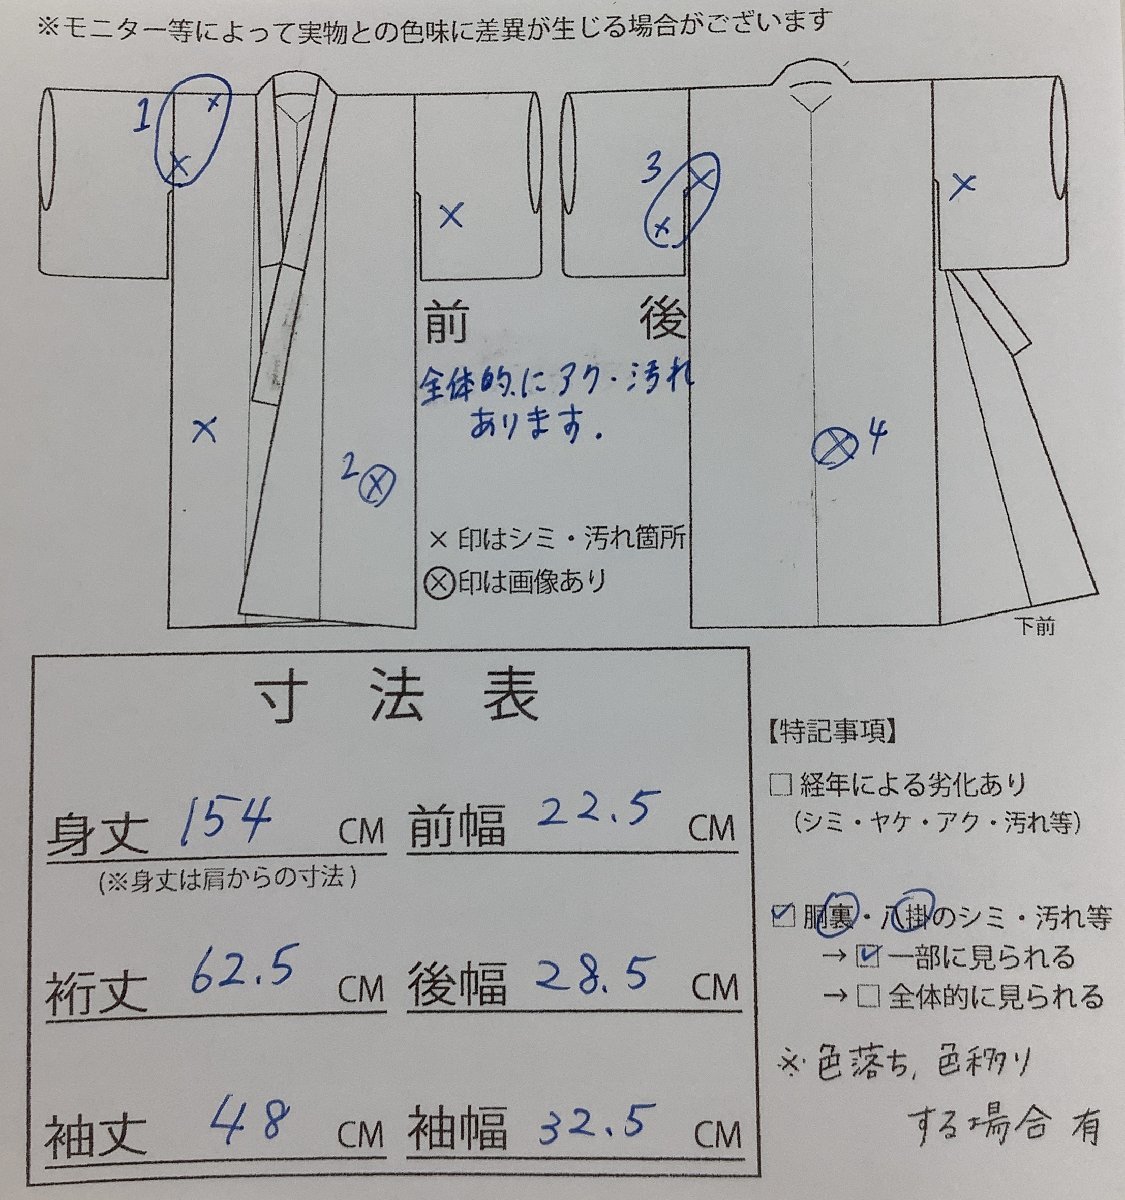 ※モニター等によって実物との色味に差異が生じる場合がございます
1
3
前
後
全体的にアク・汚れ
あります.
2
4
×印はシミ・汚れ箇所
⊗印は画像あり
下前
寸法表
身丈 154 CM 前幅 22.5 CM
(※身丈は肩からの寸法)
裄丈 62.5 CM 後幅 28.5 CM
袖丈 48 CM 袖幅 32.5 CM
【特記事項】
□ 経年による劣化あり
(シミ・ヤケ・アク・汚れ等)
☑ 胴裏・八掛のシミ・汚れ等
→ ☑ 一部に見られる
→ □ 全体的に見られる
※色落ち, 色移り
する場合有